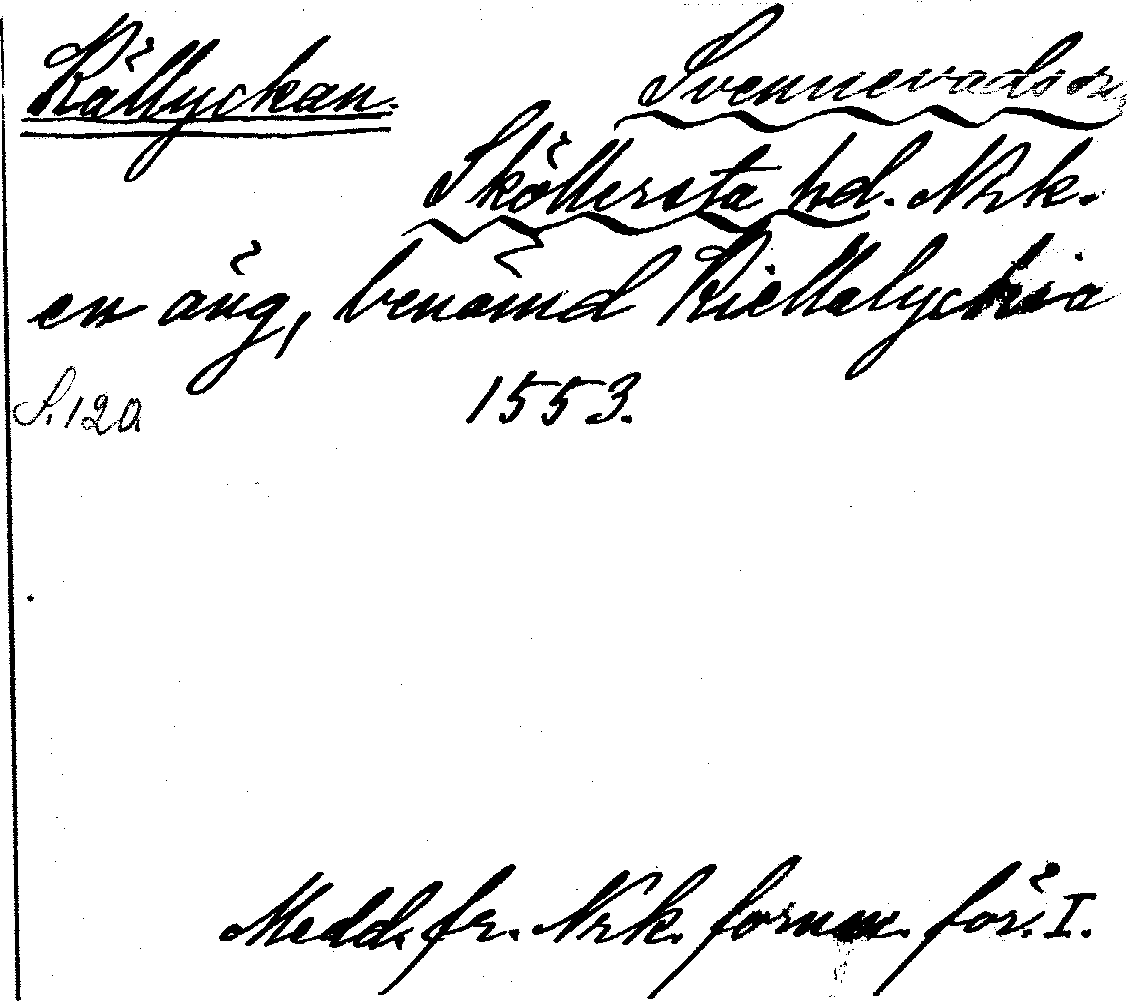 Källyckan. Svennevads sn,
Sköllersta hd. Nrk.
en äng, benämd Kiellalyckia
S. 120 1553.
Medd. fr. Nrk. fornm. för. I.